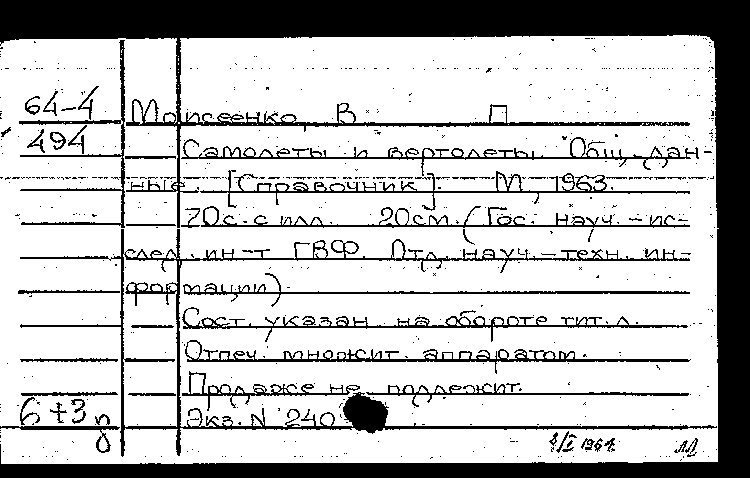 64-4 Моисеенко, В П
494 Самолеты и вертолеты. Общ. дан-
ные. [Справочник]. М., 1963.
70с. с илл. 20см. (Гос. науч.-ис-
след. ин-т ГВФ. Отд. науч.-техн. ин-
формации)
Сост. указан на обороте тит. л.
Отпеч. множит. аппаратом.
Продаже не подлежит.
6+3д Экз. N 240
1964